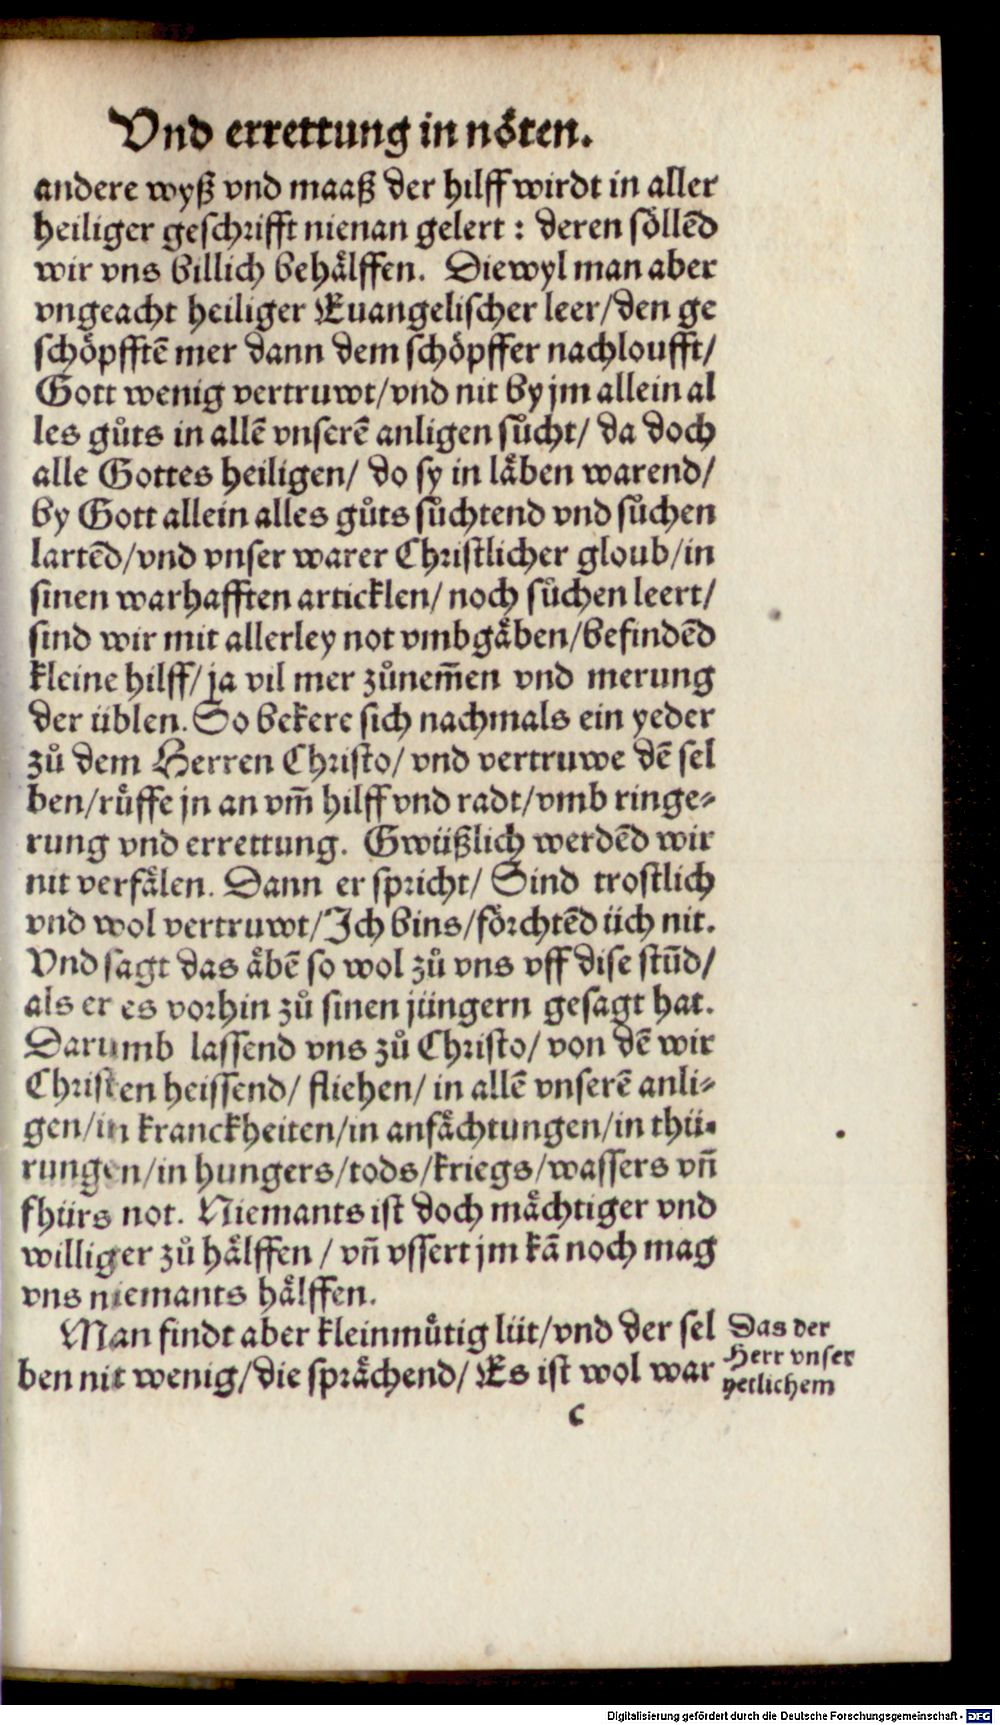 Vnd errettung in nöten.
andere wyß vnd maaß der hilff wirdt in aller
heiliger geschrifft nienan gelert : deren söllēd
wir vns billich behålffen. Diewyl man aber
vngeacht heiliger Euangelischer leer/den ge
schöpfftē mer dann dem schöpffer nachloufft/
Gott wenig vertruwt/vnd nit by jm allein al
les gůts in allē vnserē anligen sůcht/ da doch
alle Gottes heiligen/ do sy in låben warend/
by Gott allein alles gůts sůchtend vnd sůchen
lartēd/vnd vnser warer Christlicher gloub/in
sinen warhafften articklen/ noch sůchen leert/
sind wir mit allerley not vmbgåben/befindēd
kleine hilff/ ja vil mer zůnem̄en vnd merung
der üblen. So bekere sich nachmals ein yeder
zů dem Herren Christo/ vnd vertruwe dē sel
ben/růffe jn an vm̄ hilff vnd radt/vmb ringe⸗
rung vnd errettung. Gwüßlich werdēd wir
nit verfålen. Dann er spricht/ Sind trostlich
vnd wol vertruwt/Ich bins/förchtēd üch nit.
Vnd sagt das åbē so wol zů vns vff dise stūd/
als er es vorhin zů sinen jüngern gesagt hat.
Darumb lassend vns zů Christo/ von dē wir
Christen heissend/ fliehen/ in allē vnserē anli⸗
gen/in kranckheiten/in anfåchtungen/in thü⸗
rungen/in hungers/tods/kriegs/wassers vn̄
fhürs not. Niemants ist doch måchtiger vnd
williger zů hålffen / vn̄ vssert jm kā noch mag
vns niemants hålffen.
Man findt aber kleinmůtig lüt/vnd der sel
ben nit wenig/die språchend/ Es ist wol war
Das der
Herr vnser
yetlichem
c
Digitalisierung gefördert durch die Deutsche Forschungsgemeinschaft - DFG